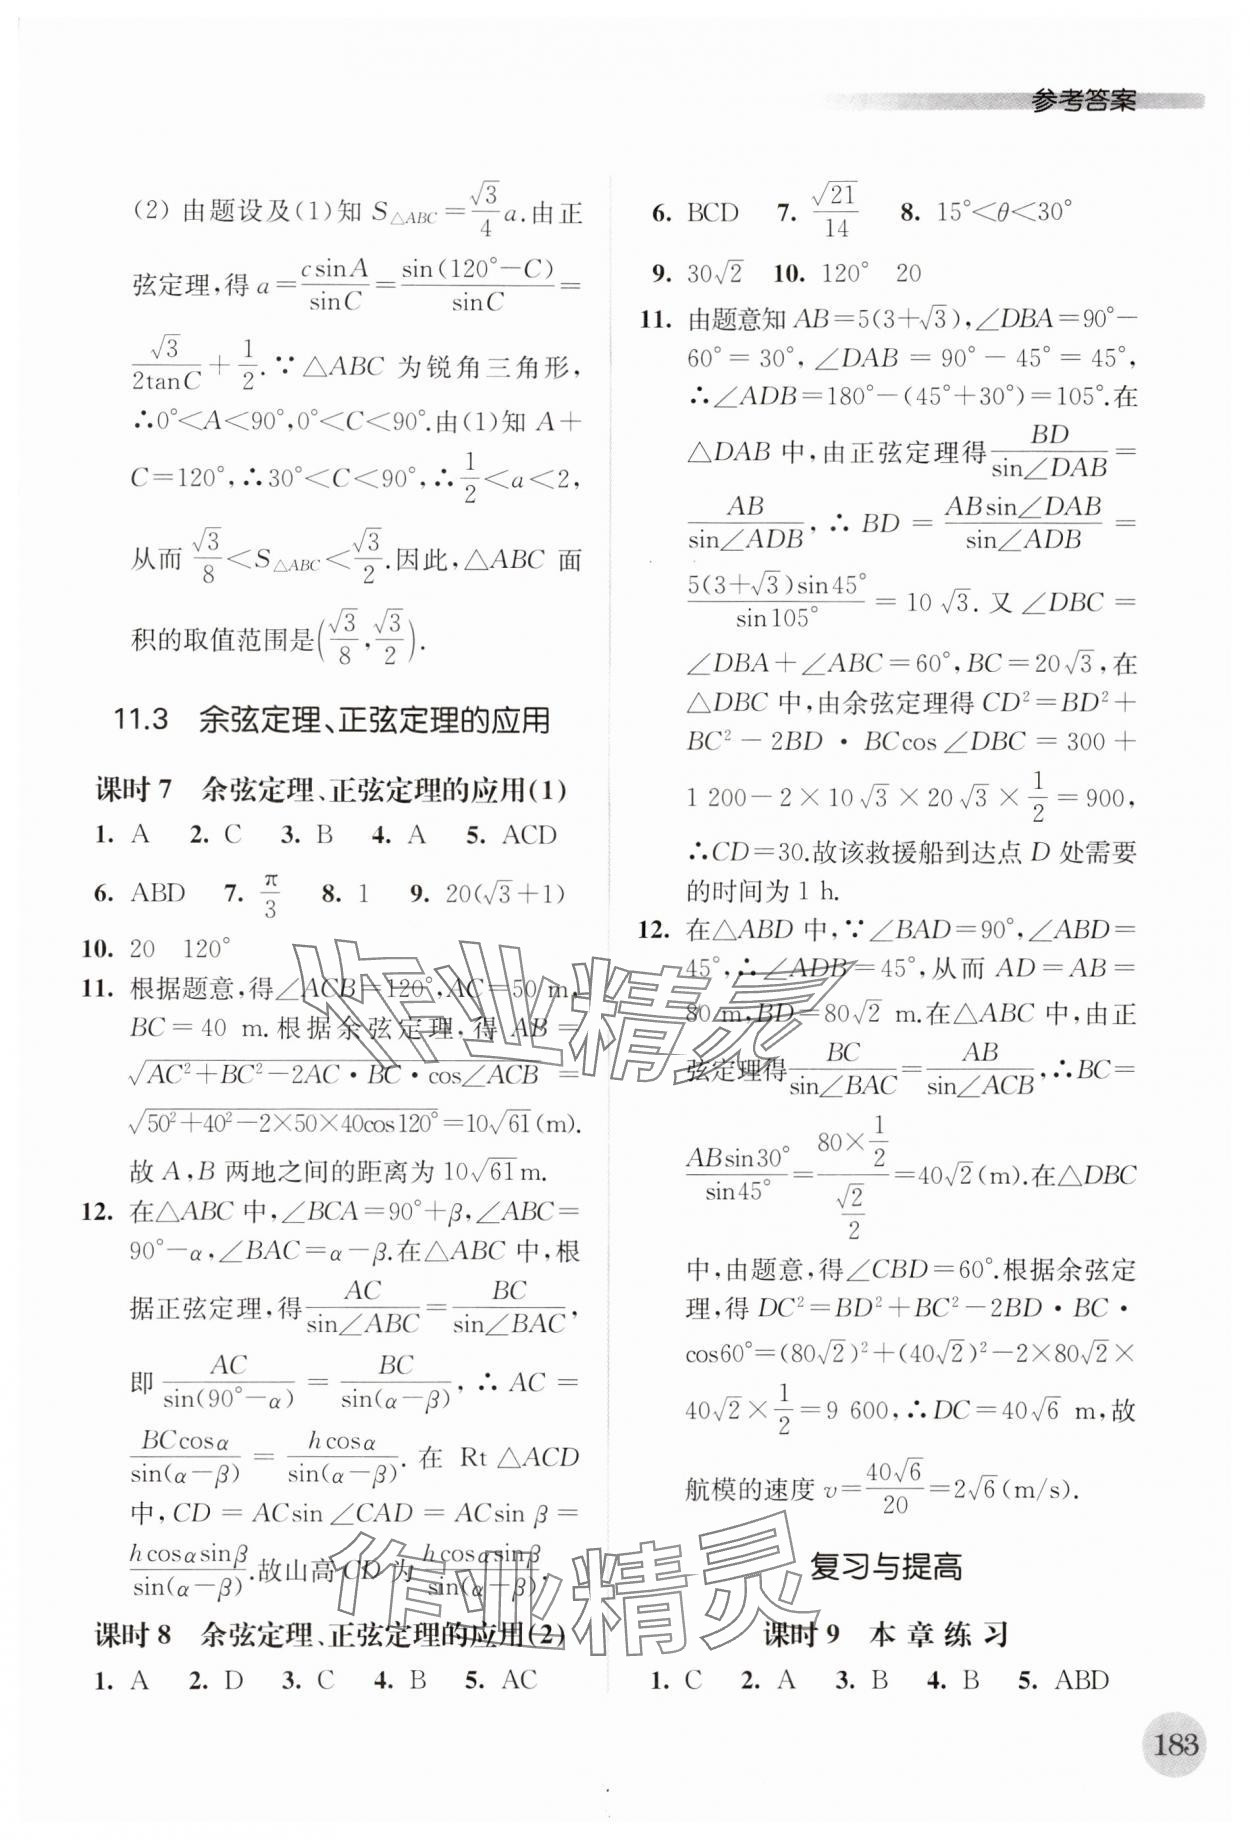 参考答案
(2) 由题设及(1)知 S△ABC=√3/4 a.由正
弦定理,得 a=csinA/sinC=sin(120°-C)/sinC=
√3/2tanC+1/2.∵△ABC 为锐角三角形,
∴0°<A<90°,0°<C<90°.由(1)知 A+
C=120°,∴30°<C<90°,∴1/2<a<2,
从而 √3/8<S△ABC<√3/2.因此,△ABC 面
积的取值范围是(√3/8,√3/2).
11.3 余弦定理、正弦定理的应用
课时 7 余弦定理、正弦定理的应用(1)
1. A 2. C 3. B 4. A 5. ACD
6. ABD 7. π/3 8. 1 9. 20(√3+1)
10. 20 120°
11. 根据题意,得∠ACB=120°,AC=50 m,
BC=40 m.根据余弦定理,得 AB=
√(AC²+BC²-2AC·BC·cos∠ACB)=
√(50²+40²-2×50×40cos120°)=10√61(m).
故 A,B 两地之间的距离为 10√61m.
12. 在△ABC 中,∠BCA=90°+β,∠ABC=
90°-α,∠BAC=α-β.在△ABC 中,根
据正弦定理,得 AC/sin∠ABC=BC/sin∠BAC,
即 AC/sin(90°-α)=BC/sin(α-β),∴AC=
BCcosα/sin(α-β)=hcosα/sin(α-β).在 Rt△ACD
中,CD=ACsin∠CAD=ACsinβ=
hcosαsinβ/sin(α-β).故山高 CD 为 hcosαsinβ/sin(α-β).
课时 8 余弦定理、正弦定理的应用(2)
1. A 2. D 3. C 4. B 5. AC
6. BCD 7. √21/14 8. 15°<θ<30°
9. 30√2 10. 120° 20
11. 由题意知 AB=5(3+√3),∠DBA=90°-
60°=30°,∠DAB=90°-45°=45°,
∴∠ADB=180°-(45°+30°)=105°.在
△DAB 中,由正弦定理得 BD/sin∠DAB=
AB/sin∠ADB,∴BD=ABsin∠DAB/sin∠ADB=
5(3+√3)sin45°/sin105°=10√3.又∠DBC=
∠DBA+∠ABC=60°,BC=20√3,在
△DBC 中,由余弦定理得 CD²=BD²+
BC²-2BD·BCcos∠DBC=300+
1 200-2×10√3×20√3×1/2=900,
∴CD=30.故该救援船到达点 D 处需要
的时间为 1 h.
12. 在△ABD 中,∵∠BAD=90°,∠ABD=
45°,∴∠ADB=45°,从而 AD=AB=
80 m,BD=80√2 m.在△ABC 中,由正
弦定理得 BC/sin∠BAC=AB/sin∠ACB,∴BC=
ABsin30°/sin45°=(80×1/2)/(√2/2)=40√2(m).在△DBC
中,由题意,得∠CBD=60°.根据余弦定
理,得 DC²=BD²+BC²-2BD·BC·
cos60°=(80√2)²+(40√2)²-2×80√2×
40√2×1/2=9 600,∴DC=40√6 m,故
航模的速度 v=40√6/20=2√6(m/s).
复习与提高
课时 9 本章练习
1. C 2. A 3. B 4. B 5. ABD
183
作业精灵
作业精灵